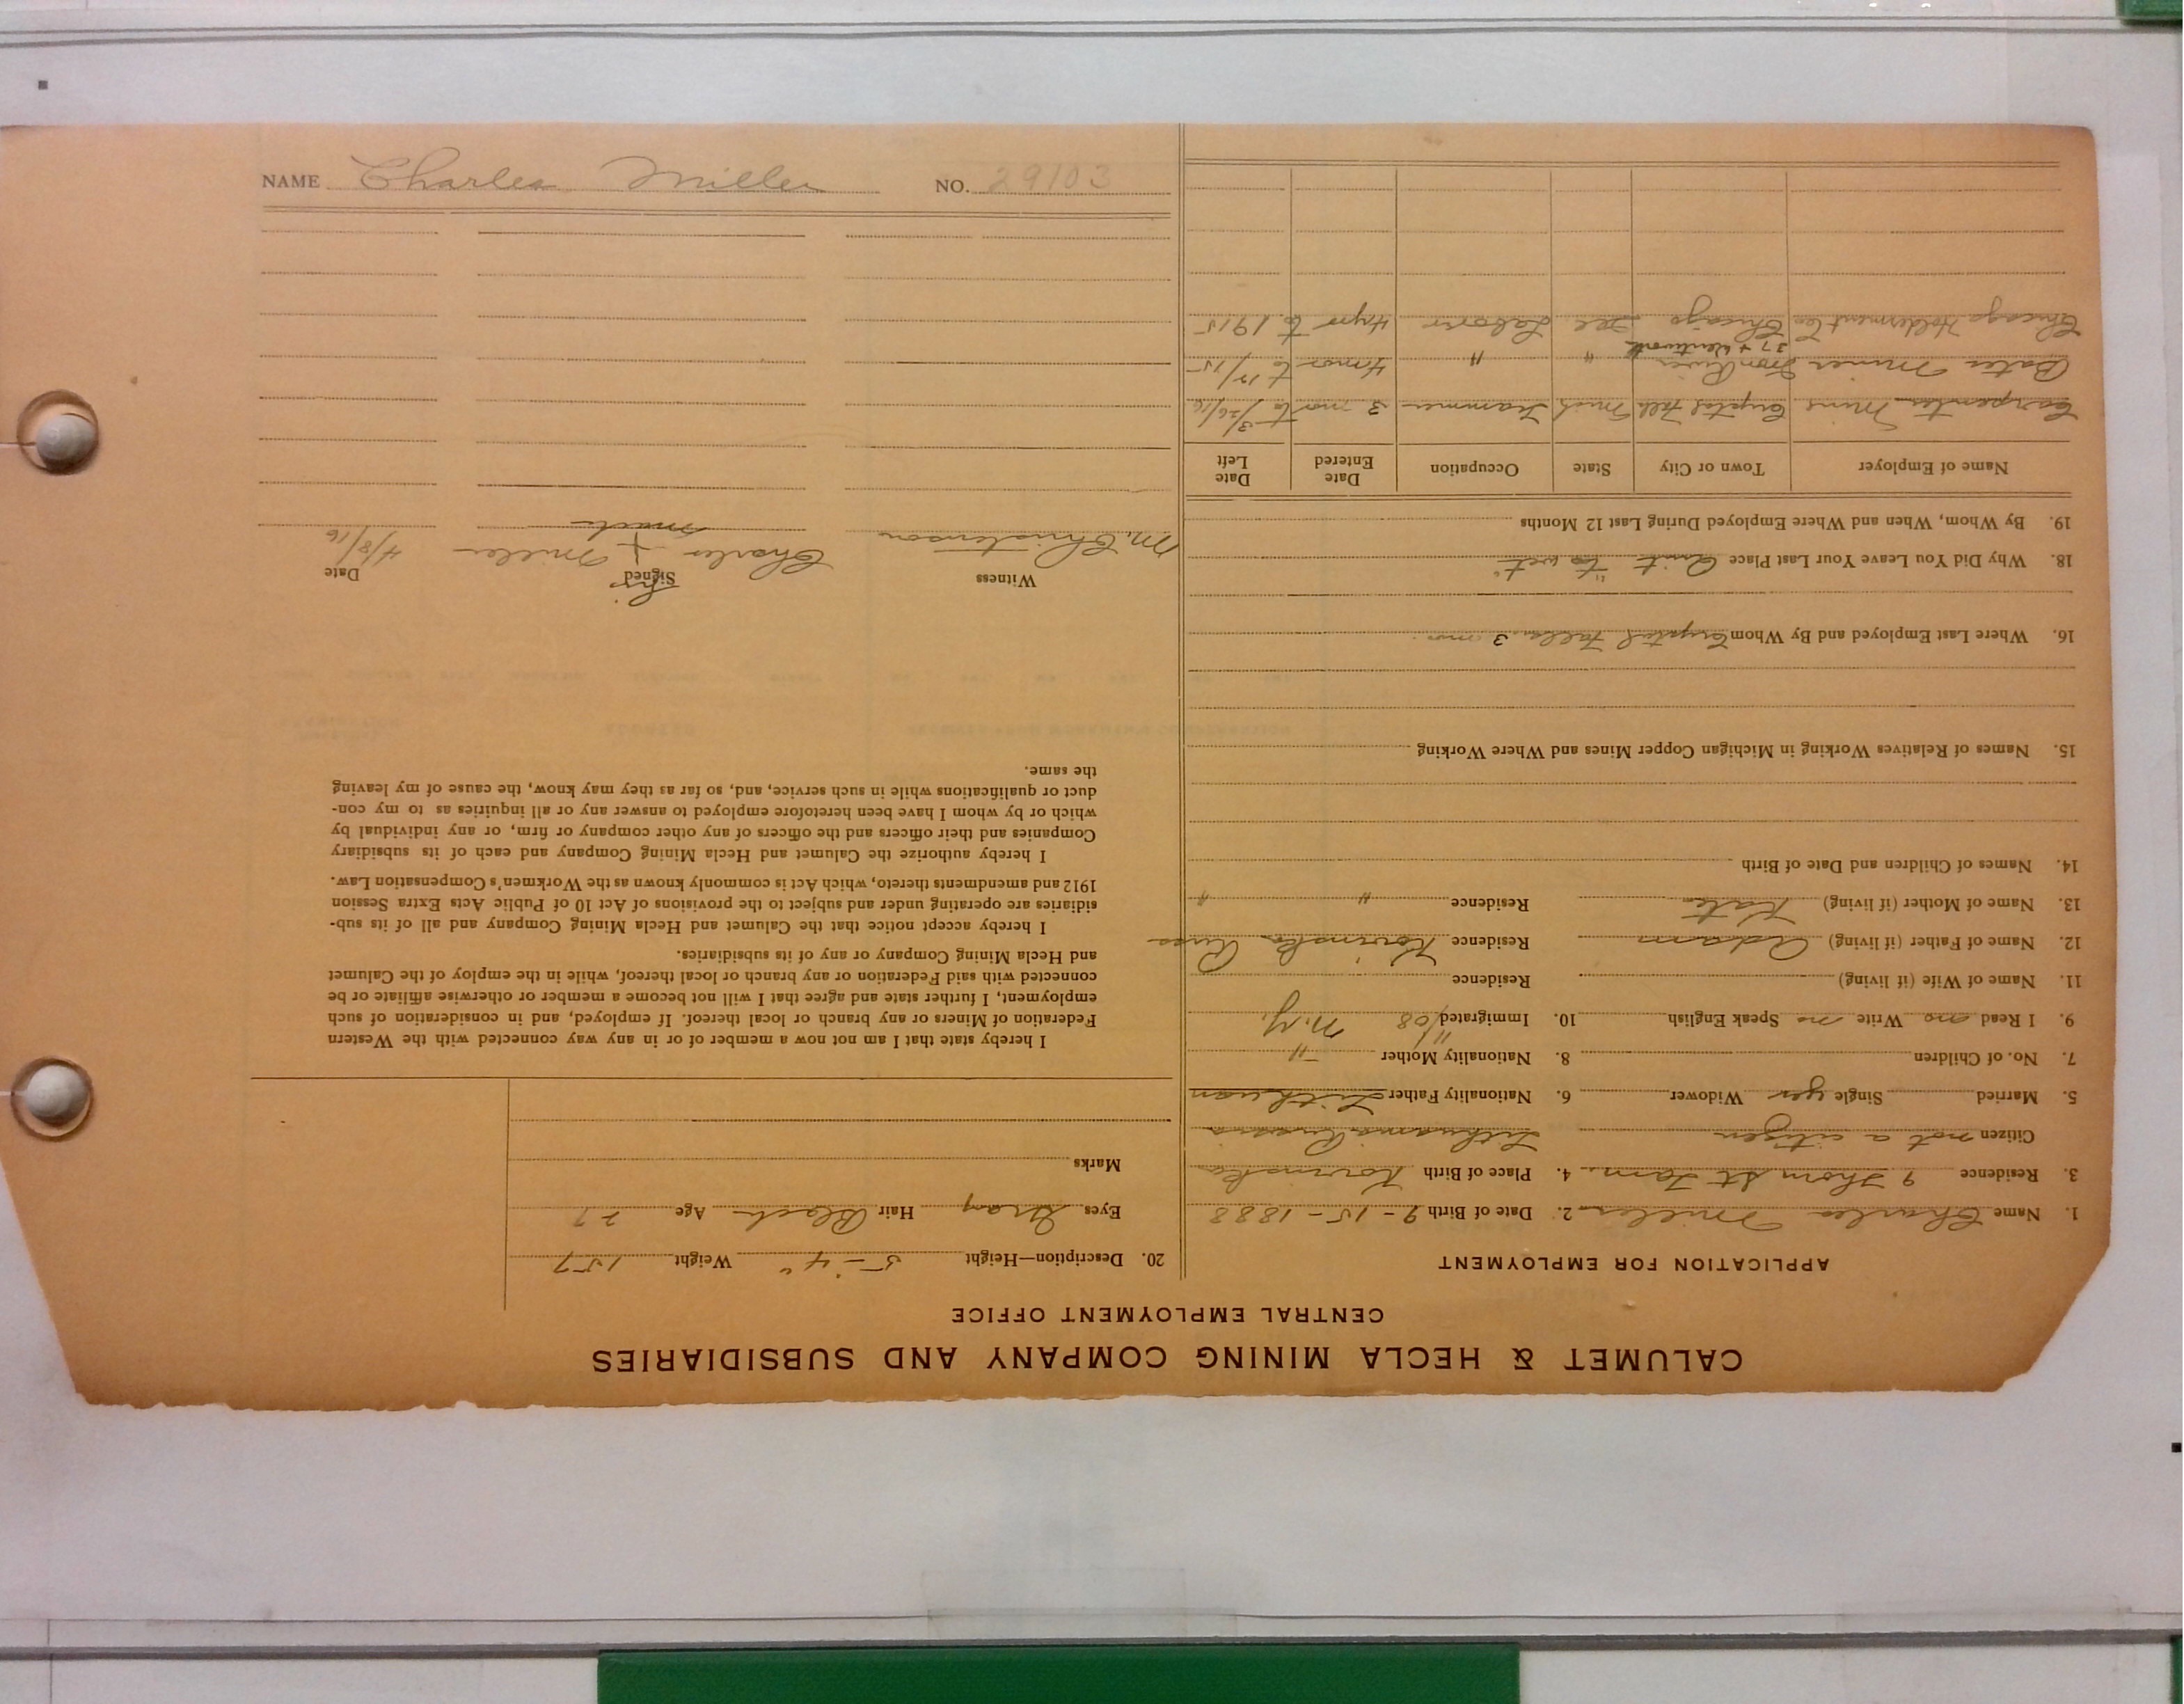 CALUMET & HECLA MINING COMPANY AND SUBSIDIARIES
CENTRAL EMPLOYMENT OFFICE
APPLICATION FOR EMPLOYMENT
1. Name Charles Miller 2. Date of Birth 9-15-1888
3. Residence 9 Thorn St Lam. 4. Place of Birth Kovinska
Citizen not a citizen Lithuania Russia
5. Married Single yes Widower 6. Nationality Father Lithuan
7. No. of Children 8. Nationality Mother "
9. I Read no Write no Speak English 10. Immigrated 11/08 N.Y.
11. Name of Wife (if living) Residence
12. Name of Father (if living) Adam Residence Kovinska Russ
13. Name of Mother (if living) Kate Residence " "
14. Names of Children and Date of Birth
15. Names of Relatives Working in Michigan Copper Mines and Where Working
16. Where Last Employed and By Whom Crystal Falls 3 mos
18. Why Did You Leave Your Last Place Quit "to wet"
19. By Whom, When and Where Employed During Last 12 Months
Name of Employer Town or City State Occupation Date Entered Date Left
Carpenter Mine Crystal Falls Mich Trammer 3 mo to 3/26/16
Bates Miner Iron River " " 4 mos to 12/15
37 + Wentworth
Chicago Chicago Ill Laborer 4 yrs to 1915
20. Description—Height 5-4" Weight 157
Eyes Gray Hair Black Age 27
Marks
I hereby state that I am not now a member of or in any way connected with the Western
Federation of Miners or any branch or local thereof. If employed, and in consideration of such
employment, I further state and agree that I will not become a member or otherwise affiliate or be
connected with said Federation or any branch or local thereof, while in the employ of the Calumet
and Hecla Mining Company or any of its subsidiaries.
I hereby accept notice that the Calumet and Hecla Mining Company and all of its sub-
sidiaries are operating under and subject to the provisions of Act 10 of Public Acts Extra Session
1912 and amendments thereto, which Act is commonly known as the Workmen's Compensation Law.
I hereby authorize the Calumet and Hecla Mining Company and each of its subsidiary
Companies and their officers and the officers of any other company or firm, or any individual by
which or by whom I have been heretofore employed to answer any or all inquiries as to my con-
duct or qualifications while in such service, and, so far as they may know, the cause of my leaving
the same.
Witness Signed Date
his
M. Christenson Charles + Miller 4/8/16
mark
NAME Charles Miller NO. 29103